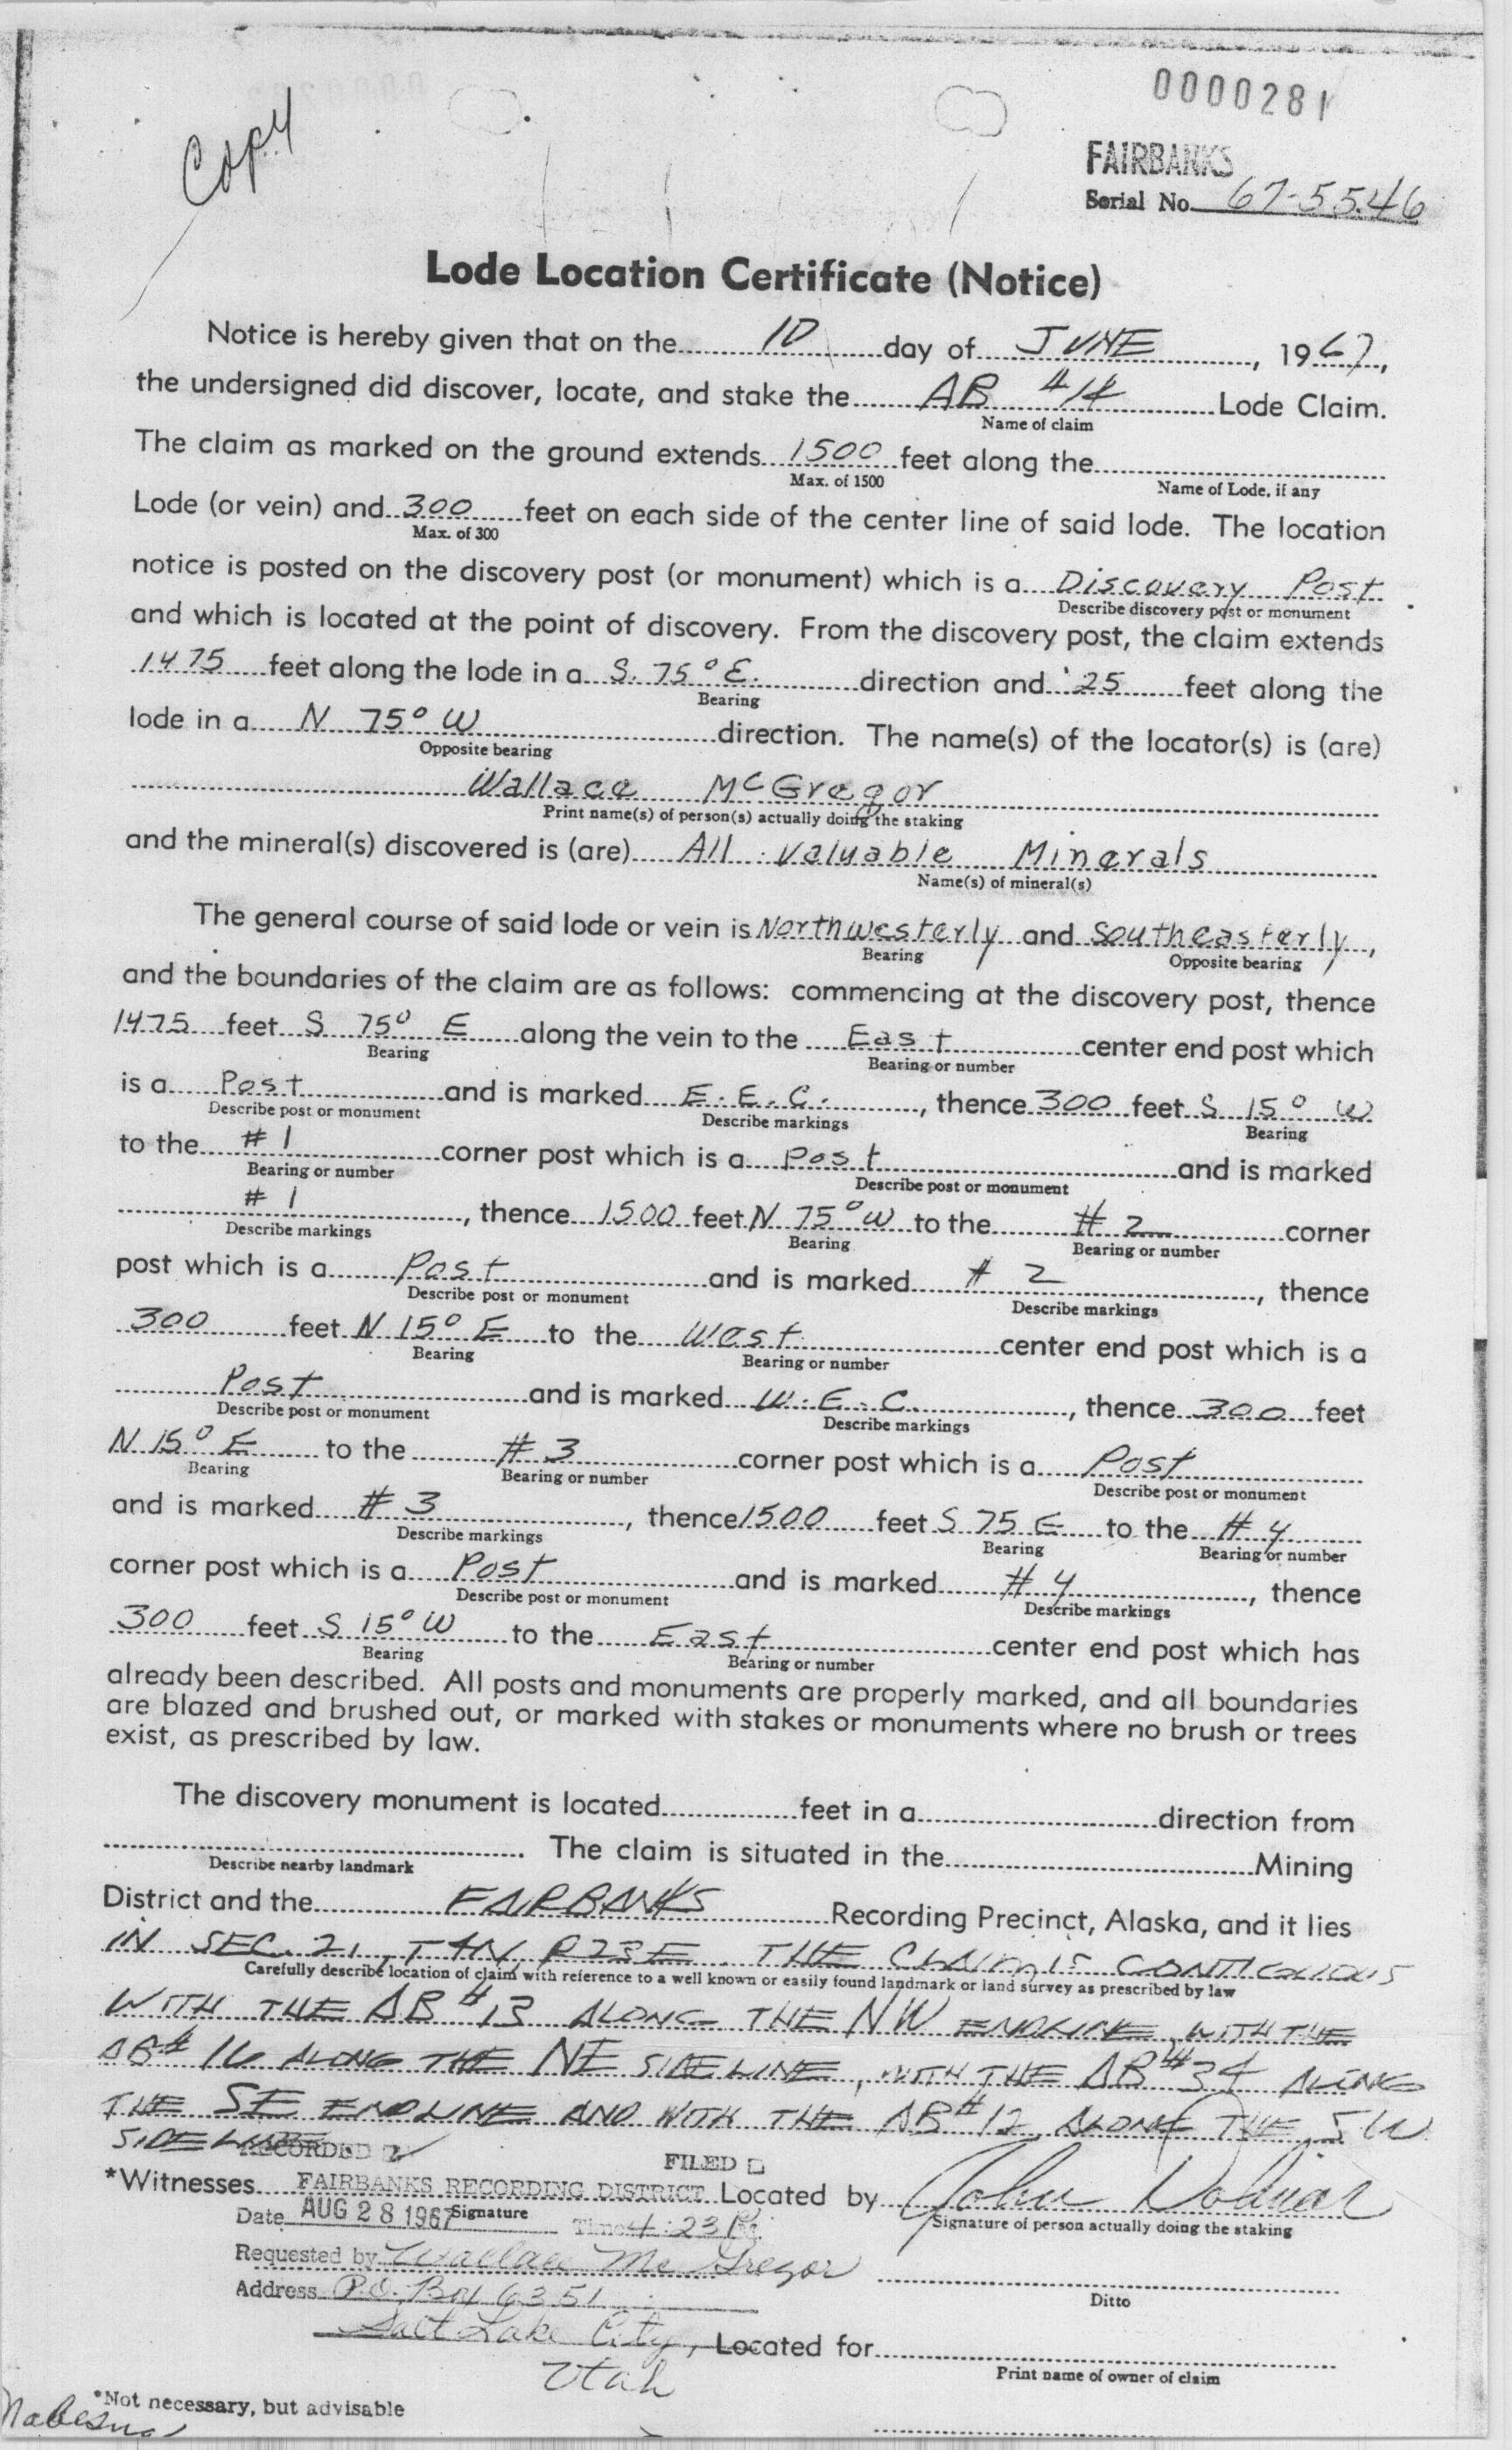 0000281
Copy
FAIRBANKS
Serial No. 67-5546
Lode Location Certificate (Notice)
Notice is hereby given that on the 10 day of JUNE, 1967,
the undersigned did discover, locate, and stake the AB #14 Lode Claim.
Name of claim
The claim as marked on the ground extends 1500 feet along the
Max. of 1500 Name of Lode, if any
Lode (or vein) and 300 feet on each side of the center line of said lode. The location
Max. of 300
notice is posted on the discovery post (or monument) which is a Discovery Post
Describe discovery post or monument
and which is located at the point of discovery. From the discovery post, the claim extends
1475 feet along the lode in a S. 75° E. direction and 25 feet along the
Bearing
lode in a N 75° W direction. The name(s) of the locator(s) is (are)
Opposite bearing
Wallace McGregor
Print name(s) of person(s) actually doing the staking
and the mineral(s) discovered is (are) All valuable Minerals
Name(s) of mineral(s)
The general course of said lode or vein is Northwesterly and Southeasterly,
Bearing Opposite bearing
and the boundaries of the claim are as follows: commencing at the discovery post, thence
1475 feet S 75° E along the vein to the East center end post which
Bearing Bearing or number
is a Post and is marked E.E.C., thence 300 feet S 15° W
Describe post or monument Describe markings Bearing
to the #1 corner post which is a Post and is marked
Bearing or number Describe post or monument
#1, thence 1500 feet N 75° W to the #2 corner
Describe markings Bearing Bearing or number
post which is a Post and is marked #2, thence
Describe post or monument Describe markings
300 feet N 15° E to the West center end post which is a
Bearing Bearing or number
Post and is marked W.E.C., thence 300 feet
Describe post or monument Describe markings
N 15° E to the #3 corner post which is a Post
Bearing Bearing or number Describe post or monument
and is marked #3, thence 1500 feet S 75 E to the #4
Describe markings Bearing Bearing or number
corner post which is a Post and is marked #4, thence
Describe post or monument Describe markings
300 feet S 15° W to the East center end post which has
Bearing Bearing or number
already been described. All posts and monuments are properly marked, and all boundaries
are blazed and brushed out, or marked with stakes or monuments where no brush or trees
exist, as prescribed by law.
The discovery monument is located feet in a direction from
The claim is situated in the Mining
Describe nearby landmark
District and the FAIRBANKS Recording Precinct, Alaska, and it lies
IN SEC. 21, T4N, R23E. THE CLAIM IS CONTIGUOUS
Carefully describe location of claim with reference to a well known or easily found landmark or land survey as prescribed by law
WITH THE AB #13 ALONG THE NW ENDLINE, WITH THE
AB# 16 ALONG THE NE SIDELINE, WITH THE AB #34 ALONG
THE SE ENDLINE AND WITH THE AB #12 ALONG THE SW
SIDELINE
RECORDED
FILED
*Witnesses FAIRBANKS RECORDING DISTRICT Located by John
Date AUG 28 1967 Signature Time 4:23 P Signature of person actually doing the staking
Requested by Wallace McGregor
Address P.O. Box 6351 Ditto
Salt Lake City, Located for
Utah Print name of owner of claim
*Not necessary, but advisable
Nabesna